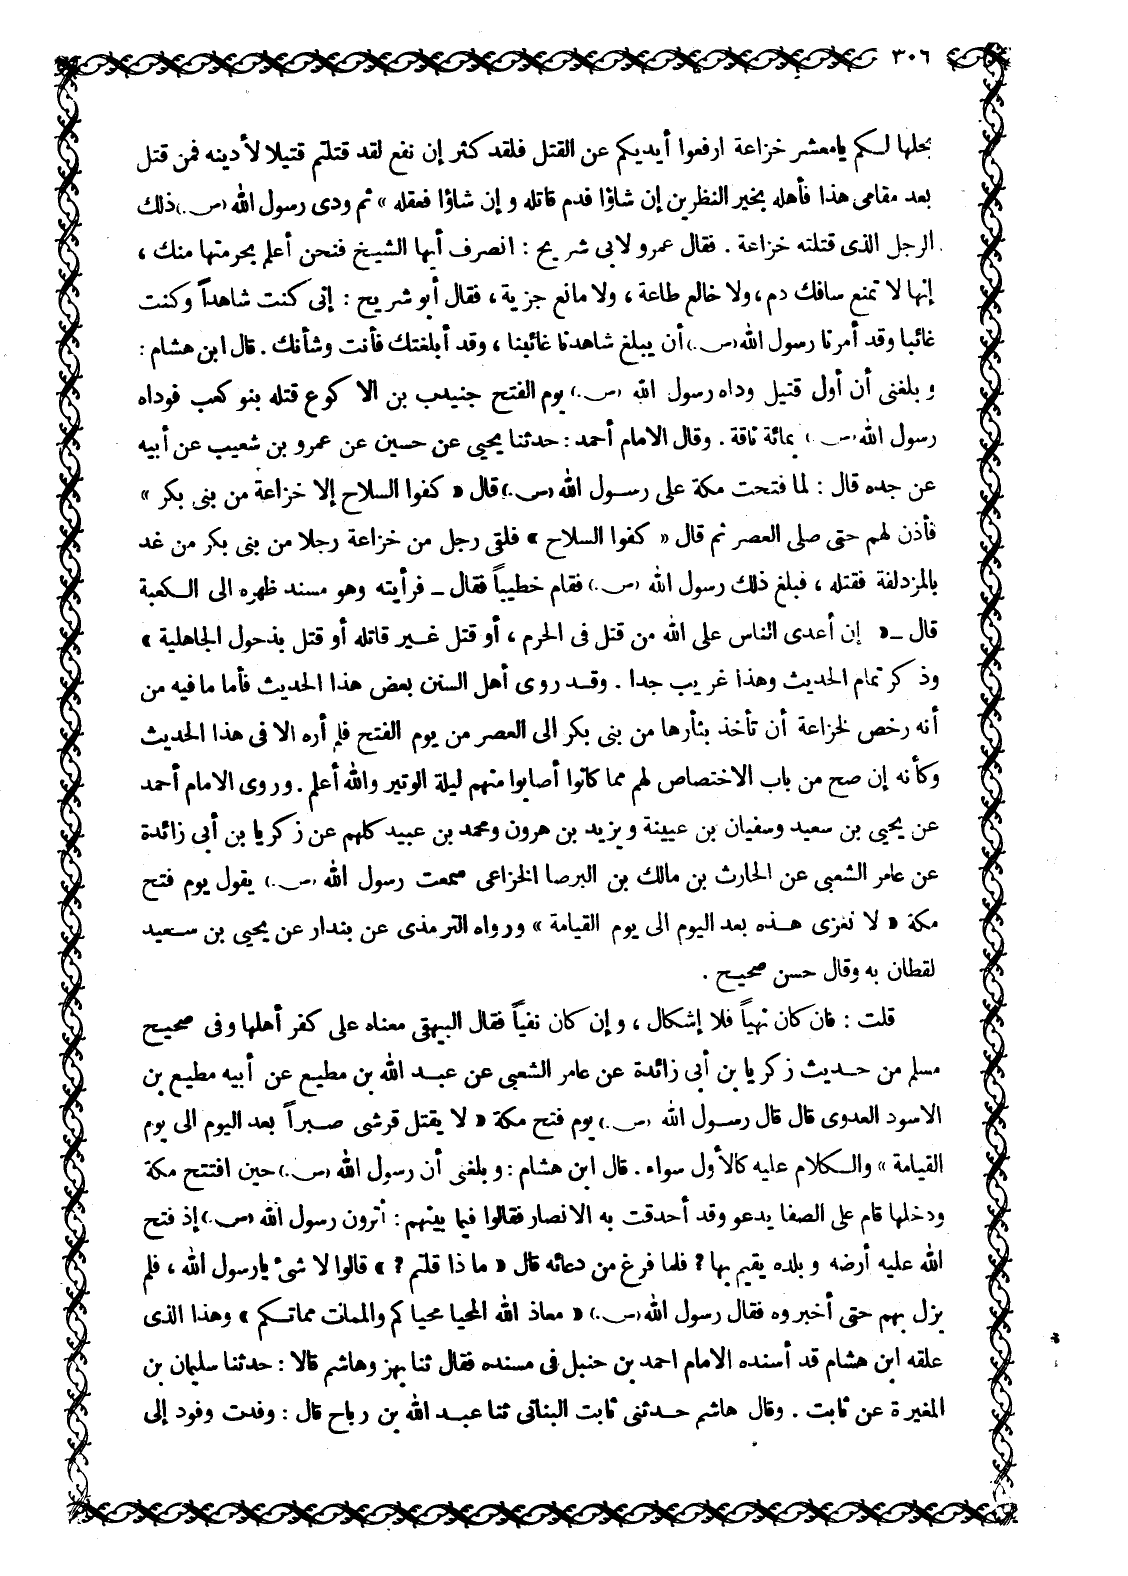 ٣٠٦
يحلها لكم يامعشر خزاعة ارفعوا أيديكم عن القتل فلقد كثر إن نفع لقد قتلتم قتيلا لأدينه فمن قتل
بعد مقامى هذا فأهله بخير النظرين إن شاؤا قدم قاتله و إن شاؤا فعقله » ثم ودى رسول الله (ص.) ذلك
الرجل الذى قتلته خزاعة . فقال عمرو لابى شريح : انصرف أيها الشيخ فنحن أعلم بحرمتها منك ،
إنها لا تمنع سافك دم ، ولا خالع طاعة ، ولا مانع جزية ، فقال أبو شريح : إنى كنت شاهداً وكنت
غائبا وقد أمرنا رسول الله (ص.) أن يبلغ شاهدنا غائبنا ، وقد أبلغتك فأنت وشأنك . قال ابن هشام :
و بلغنى أن أول قتيل وداه رسول الله (ص.) يوم الفتح جنيدب بن الاكوع قتله بنو كعب فوداه
رسول الله (ص.) بمائة ناقة . وقال الامام أحمد : حدثنا يحيى عن حسين عن عمرو بن شعيب عن أبيه
عن جده قال : لما فتحت مكة على رسول الله (ص.) قال « كفوا السلاح إلا خزاعة من بنى بكر »
فأذن لهم حتى صلى العصر ثم قال « كفوا السلاح » فلقى رجل من خزاعة رجلا من بنى بكر من غد
بالمزدلفة فقتله ، فبلغ ذلك رسول الله (ص.) فقام خطيباً فقال ــ فرأيته وهو مسند ظهره الى الكعبة
قال ــ « إن أعدى الناس على الله من قتل فى الحرم ، أو قتل غير قاتله أو قتل بذحول الجاهلية »
وذكر تمام الحديث وهذا غريب جدا . وقد روى أهل السنن بعض هذا الحديث فأما ما فيه من
أنه رخص لخزاعة أن تأخذ بثأرها من بنى بكر الى العصر من يوم الفتح فلم أره الا فى هذا الحديث
وكأنه إن صح من باب الاختصاص لهم مما كانوا أصابوا منهم ليلة الوتير والله أعلم . وروى الامام أحمد
عن يحيى بن سعيد وسفيان بن عيينة ويزيد بن هرون ومحمد بن عبيد كلهم عن زكريا بن أبى زائدة
عن عامر الشعبى عن الحارث بن مالك بن البرصا الخزاعى سمعت رسول الله (ص.) يقول يوم فتح
مكة « لا تغزى هذه بعد اليوم الى يوم القيامة » ورواه الترمذى عن بندار عن يحيى بن سعيد
لقطان به وقال حسن صحيح .
قلت : فان كان نهياً فلا إشكال ، و إن كان نفياً فقال البيهقى معناه على كفر أهلها وفى صحيح
مسلم من حديث زكريا بن أبى زائدة عن عامر الشعبى عن عبد الله بن مطيع عن أبيه مطيع بن
الاسود العدوى قال قال رسول الله (ص.) يوم فتح مكة « لا يقتل قرشى صبراً بعد اليوم الى يوم
القيامة » والكلام عليه كالأول سواء . قال ابن هشام : و بلغنى أن رسول الله (ص.) حين افتتح مكة
ودخلها قام على الصفا يدعو وقد أحدقت به الانصار فقالوا فيما بينهم : أترون رسول الله (ص.) إذ فتح
الله عليه أرضه و بلده يقيم بها ؟ فلما فرغ من دعائه قال « ما ذا قلتم ؟ » قالوا لا شىء يارسول الله ، فلم
يزل بهم حتى أخبروه فقال رسول الله (ص.) « معاذ الله المحيا محياكم والممات مماتكم » وهذا الذى
علقه ابن هشام قد أسنده الامام احمد بن حنبل فى مسنده فقال ثنا بهز وهاشم قالا : حدثنا سليمان بن
المغيرة عن ثابت . وقال هاشم حدثنى ثابت البنانى ثنا عبد الله بن رباح قال : وفدت وفود إلى